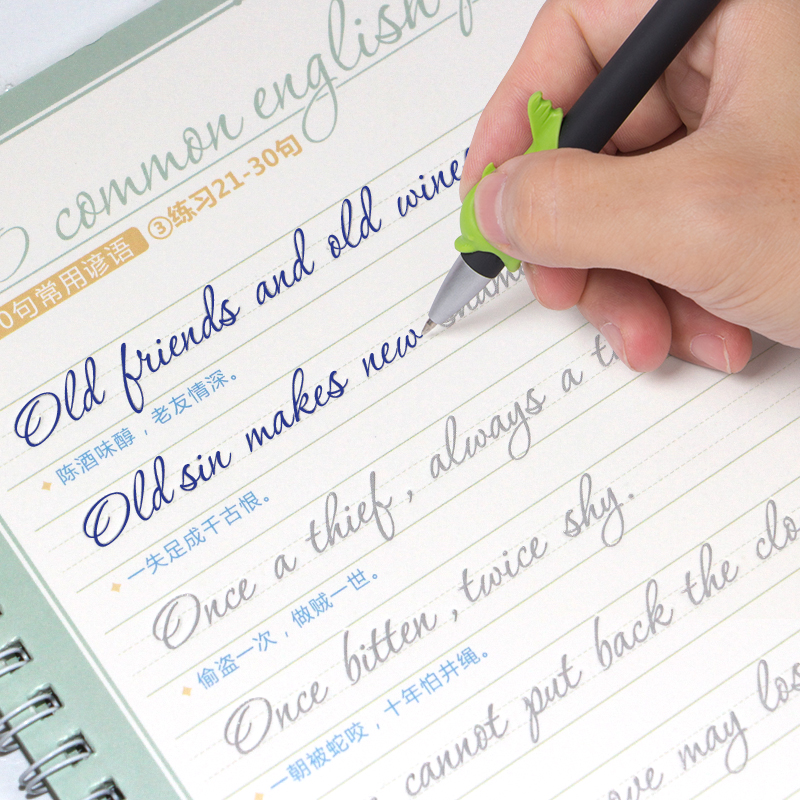 common english
0句常用谚语 ③练习21-30句
Old friends and old wine
陈酒味醇，老友情深。
Old sin makes new
一失足成千古恨。
Once a thief, always a
偷盗一次，做贼一世。
Once bitten, twice shy.
一朝被蛇咬，十年怕井绳。
cannot put back the clo
may los